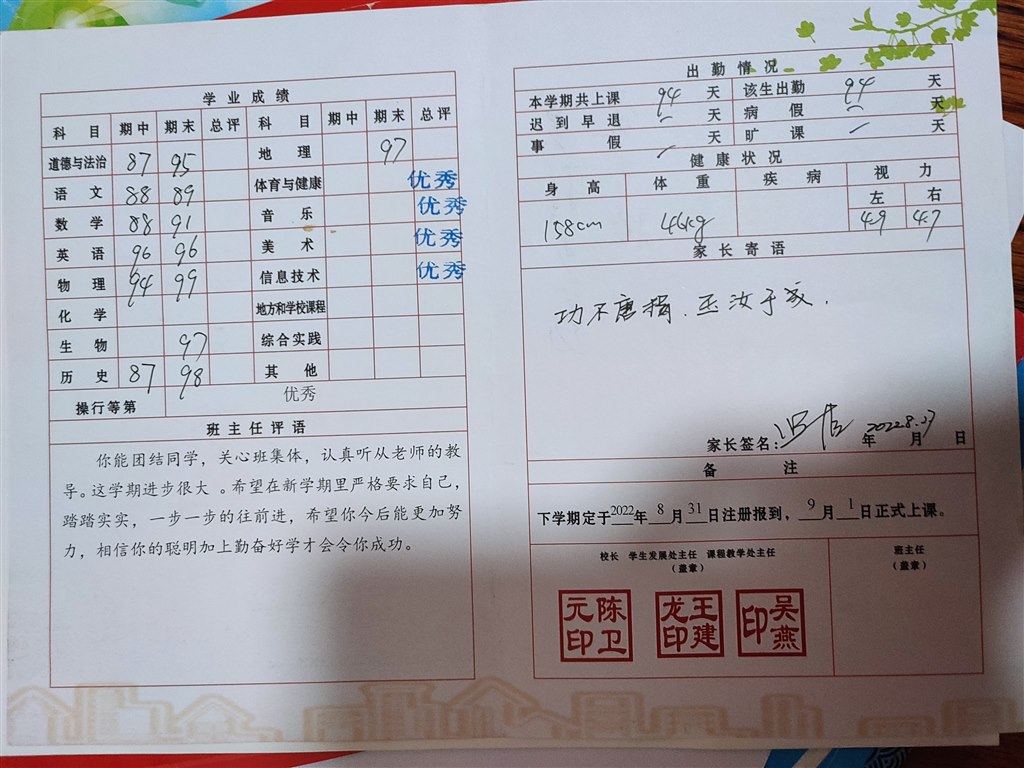 学业成绩
科目 期中 期末 总评 科目 期中 期末 总评
道德与法治 87 95 地理 97
语文 88 89 体育与健康 优秀
数学 88 91 音乐 优秀
英语 96 96 美术 优秀
物理 94 99 信息技术 优秀
化学 地方和学校课程
生物 97 综合实践
历史 87 98 其他
操行等第 优秀
班主任评语
你能团结同学，关心班集体，认真听从老师的教
导。这学期进步很大 。希望在新学期里严格要求自己，
踏踏实实，一步一步的往前进，希望你今后能更加努
力，相信你的聪明加上勤奋好学才会令你成功。
出勤情况
本学期共上课 94 天 该生出勤 94 天
迟到早退 天 病假 天
事假 天 旷课 天
健康状况
身高 体重 疾病 视力
左 右
158cm 44kg 4.9 4.7
家长寄语
功不唐捐.玉汝于成.
家长签名: 2022.8.27 年 月 日
备注
下学期定于2022年8月31日注册报到，9月1日正式上课。
校长 学生发展处主任 课程教学处主任
（盖章）
班主任
（盖章）
陈卫元印
王建龙印
吴燕印